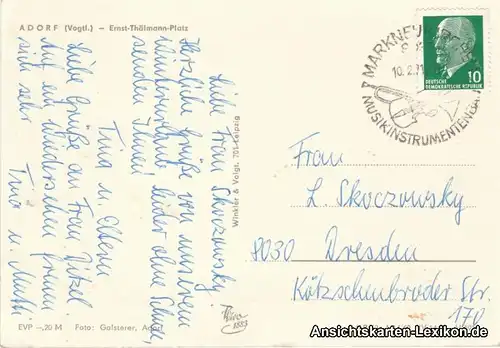 ADORF (Vogtl.) — Ernst-Thälmann-Platz
Liebe Frau Skoczowsky
Herzliche Grüße von unserem
Winterurlaub leider ohne Schnee,
senden Ihnen
Tina u. Eltern
Liebe Grüße an Frau Ditzel.
Auf ein Wiedersehen freuen
sich sehr
Tina u. Mutti
EVP —,20 M Foto: Golsterer, Adorf
Winkler & Voigt, 701 Leipzig
MARKNEUKIRCHEN
10.2.71
MUSIKINSTRUMENTEN
10
DEUTSCHE
DEMOKRATISCHE REPUBLIK
Frau
L. Skoczowsky
8030 Dresden
Kötzschenbroder Str.
170
Ansichtskarten-Lexikon.de